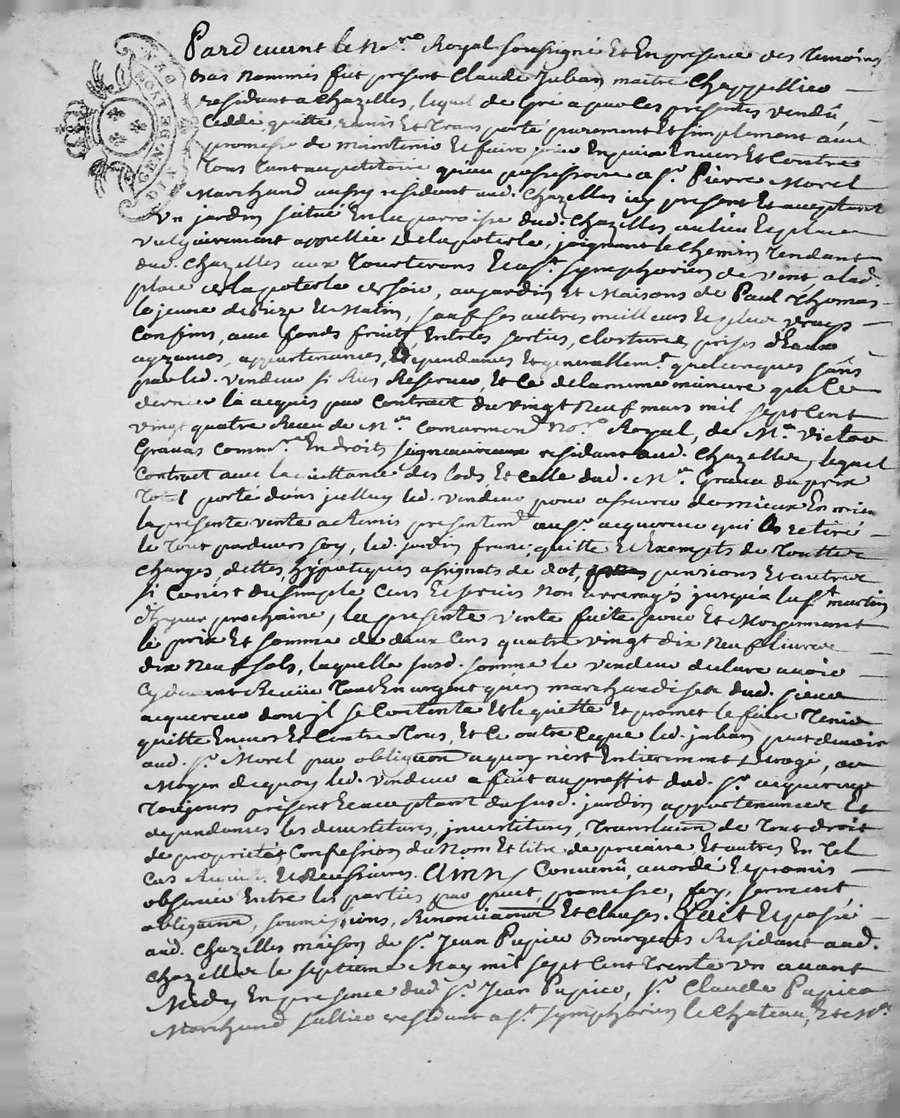 GEN. DE LYON
MOYEN
DIX DEN
Pardevant le No.re Royal soussigné Et En presence des temoins
bas nommés fut present Claude Juban maitre Chappellier
residant a Chazelles, lequel de gré a par Ces presentes vendû,
Cedde quitte remis Et transporté purement Et simplement avec
promesse de maintenir Et faire jouir En paix Envers Et Contre
tous tant au petitoire qu'au possessoire a S.r Pierre Morel
Marchand aussy residant aud. Chazelles icy present Et acceptant
Un jardin situé En la parroisse dud. Chazelles au lieu Et place
vulgairement appellée de la poterle, joignant le chemin tendant
dud. Chazelles aux tourterons Et a S.t Symphorien de vent a lad.
place de la poterle de soir, au jardin Et Maisons de Paul Thomas
le jeune de bize Et Matin, sauf ses autres meilleurs Et plus vrays
Confins, avec fonds fruits, Entrées sorties, clostures prises d'Eaux
ayzances, appartenances, dependances Et generallem.t quelconques sans
par led. vendeur si Rien Reserver, Et Ce de la meme maniere que Ce
dernier la acquis par Contract du vingt Neuf mars mil sept Cent
vingt quatre Receu de M.e Comarmond No.re Royal, de M.e Victor
Gravas Comm.re En droits seigneuriaux residant aud. Chazelles, lequel
Contract avec la quittance des Lods Et Celle dud. M.e Gravas du prix
total porté dans icelluy led. vendeur pour asseurer d'autant mieux
la presente vente a remis presentem.t au S.r acquereur qui les a retiré
le tout pardevers soy, led. jardin franc, quitte Et Exempts de touttes
charges, dettes, hypoteques assignats de dot, pensions Et autres
si Ce n'est du simple Cens Et servis Non arreragés jusqu'a la S.t martin
d'hyver prochaine, la presente vente faite pour Et Moyennant
le prix Et somme de deux Cens quatre vingt dix Neuf livres
dix Neuf sols, laquelle susd. somme le vendeur declare avoir
Cy devant Receüe tant En argent qu'En marchandises dud. sieur
acquereur dont jl se Contente Et le quitte Et promet le faire tenir
quitte Envers Et Contre tous, Et Ce outre Ce que led. Juban peut devoir
aud. S.r Morel par obligaôn a quoy n'est Entierement derogé, au
Moyen de quoy led. vendeur a fait au proffit dud. S.r acquereur
toujours present Et acceptant du susd. jardin appartenances Et
dependances les devestitures, jnvestitures, Translaôn de tout droit
de proprieté Confession du Nom Et titre de precaire Et autres En tel
Cas Requises Et Necessaires. Ainsy Convenû, accordé Et promis
observer Entre les parties par pact, promesse, foy, serment
obligaôns, soumissions, Renonciaôns Et clauses. Fait Et passé
aud. Chazelles maison de S.r Jean Papier Bourgeois Residant aud.
Chazelles le septieme May mil sept Cent trente un avant
Midy En presence dud. S.r Jean Papier, S.r Claude Papier
Marchand sallier residant a S.t Symphorien le Chateau, Et M.e